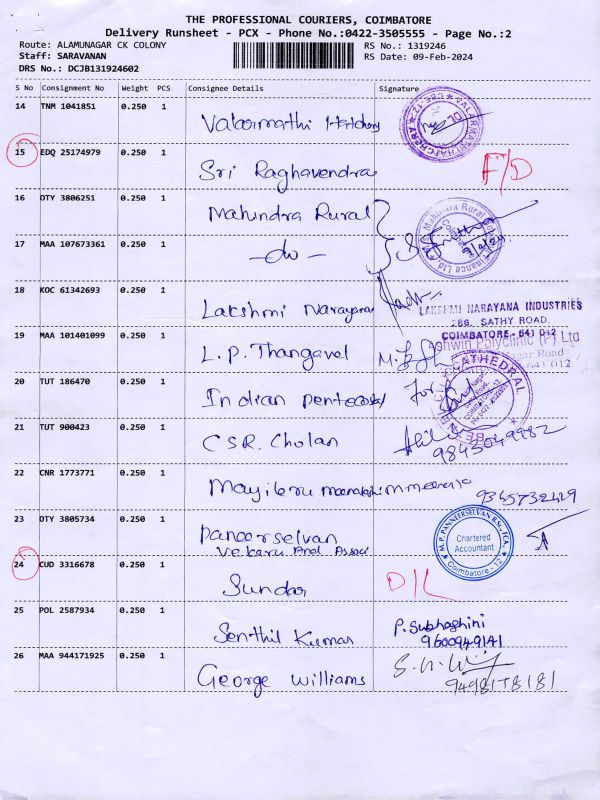 THE PROFESSIONAL COURIERS, COIMBATORE
Delivery Runsheet - PCX - Phone No.:0422-3505555 - Page No.:2
Route: ALAMUNAGAR CK COLONY
Staff: SARAVANAN
DRS No.: DCJB131924602
RS No.: 1319246
RS Date: 09-Feb-2024
S No Consignment No Weight PCS Consignee Details Signature
14 TNM 1041851 0.250 1
Valarmathi Hatchery
15 EDQ 25174979 0.250 1
Sri Raghavendra F/D
16 DTY 3806251 0.250 1 Mahindra Rural
17 MAA 107673361 0.250 1 - do -
9/2/24
18 KOC 61342693 0.250 1
Lakshmi Narayana
LAKSHMI NARAYANA INDUSTRIES
286, SATHY ROAD,
COIMBATORE - 641 012
19 MAA 101401099 0.250 1
L.P. Thangavel
Polyclinic (P) Ltd
Road
641 012
20 TUT 186470 0.250 1
Indian Pentecostal For
CATHEDRAL
21 TUT 900423 0.250 1
CSR. Cholan
9843049982
22 CNR 1773771 0.250 1
Mayileru meenakshi M meena
9345732429
23 DTY 3805734 0.250 1
Paneerselvan
And Assou
M.P. PANNEERSELVAN B.Sc., FCA.
Chartered
Accountant
Coimbatore - 12
24 CUD 3316678 0.250 1
Sundar D/L
25 POL 2587934 0.250 1
Senthil Kumar P. Subhashini
9600949141
26 MAA 944171925 0.250 1
George Williams
9498178181